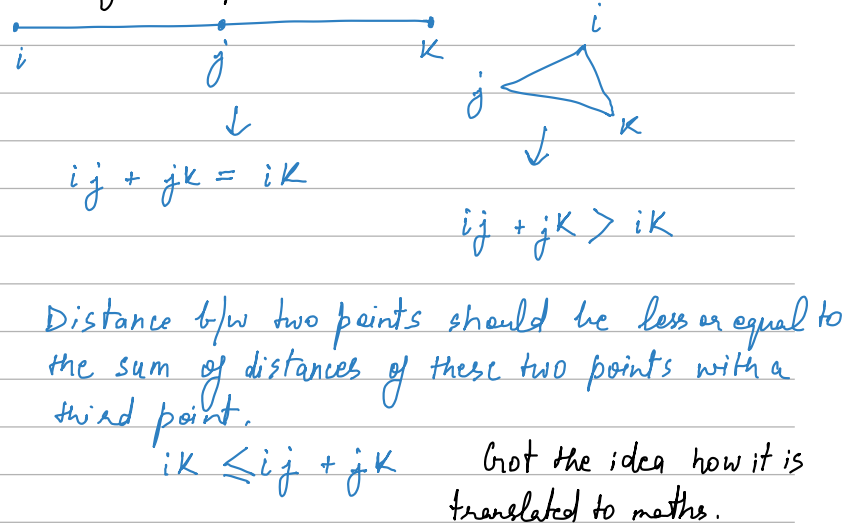 i j k
i
j k
ij + jk = ik
ij + jk > ik
Distance b/w two points should be less or equal to
the sum of distances of these two points with a
third point.
ik ≤ ij + jk
Got the idea how it is
translated to maths.